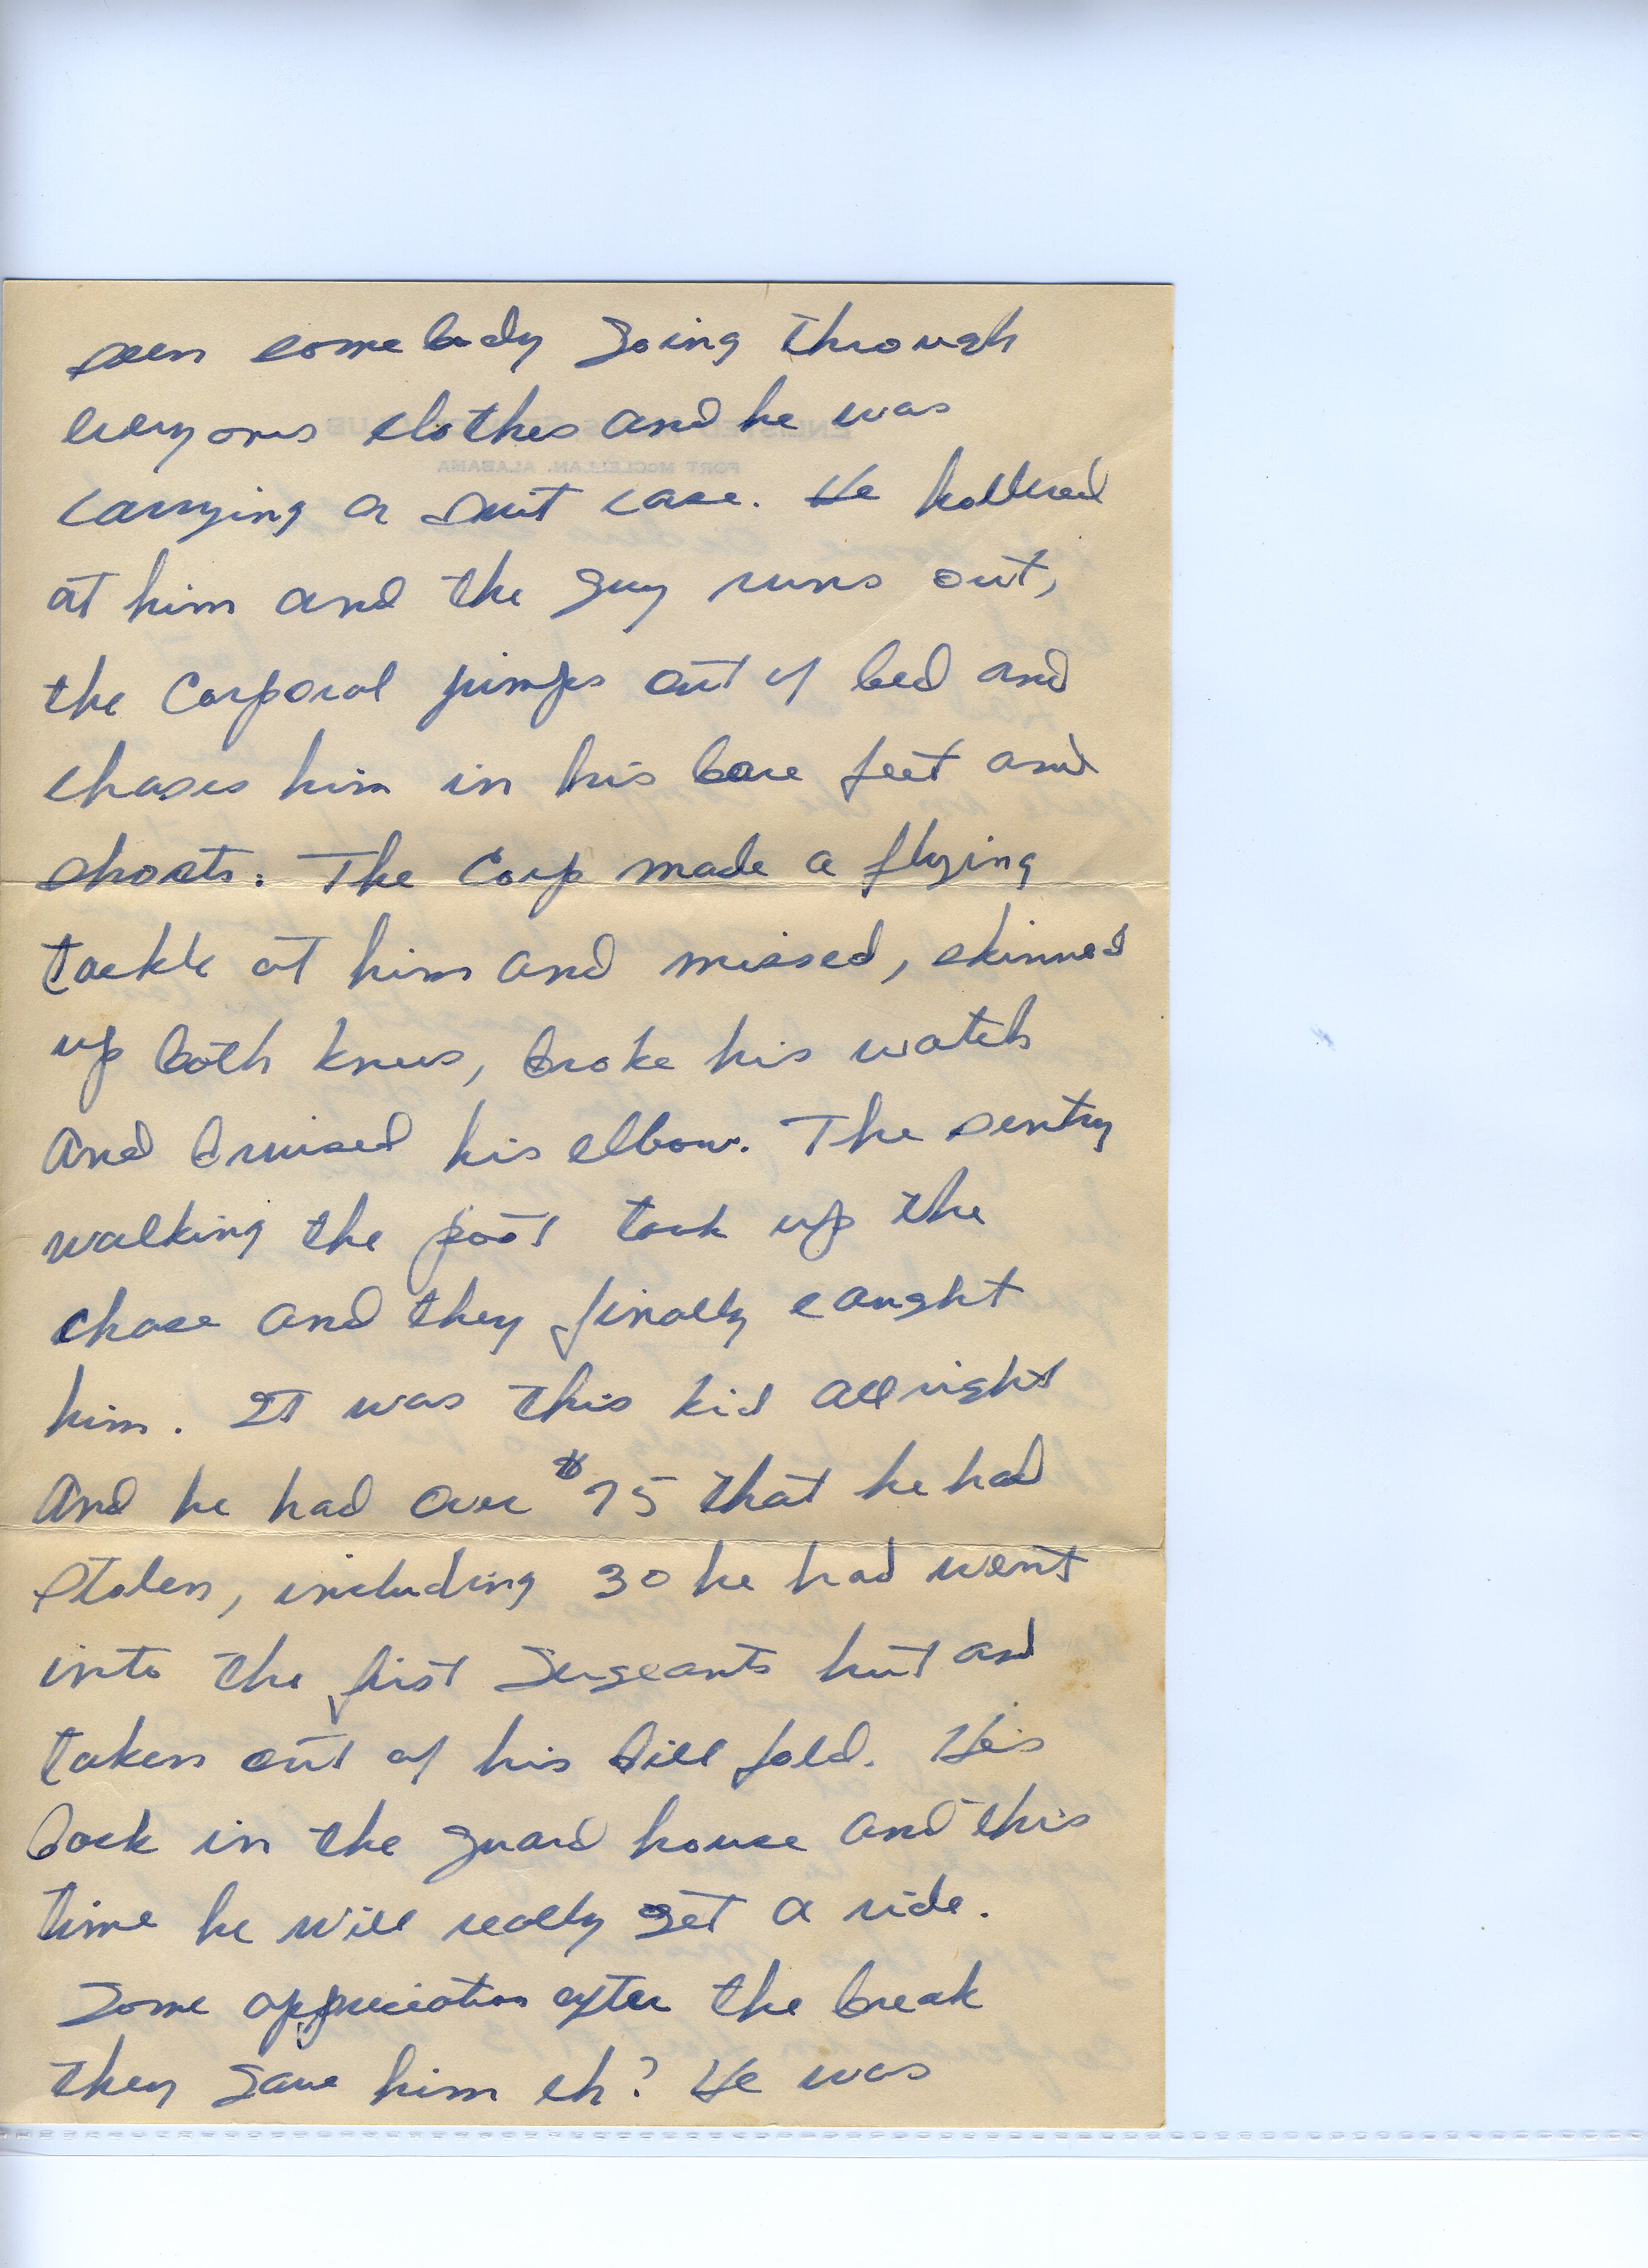 seen somebody going through
everyones clothes and he was
carrying a suit case. He hollered
at him and the guy runs out,
the Corporal jumps out of bed and
chases him in his bare feet and
shorts. The Corp made a flying
tackle at him and missed, skinned
up both knees, broke his watch
and bruised his elbow. The sentry
walking the post took up the
chase and they finally caught
him. It was this kid allright
and he had over $75 that he had
stolen, including 30 he had went
into the first Sergeants hut and
taken out of his bill fold. He's
back in the guard house and this
time he will really get a ride.
Some appreciation after the break
they gave him eh? He was
ENLISTED
FORT McCLELLAN, ALABAMA